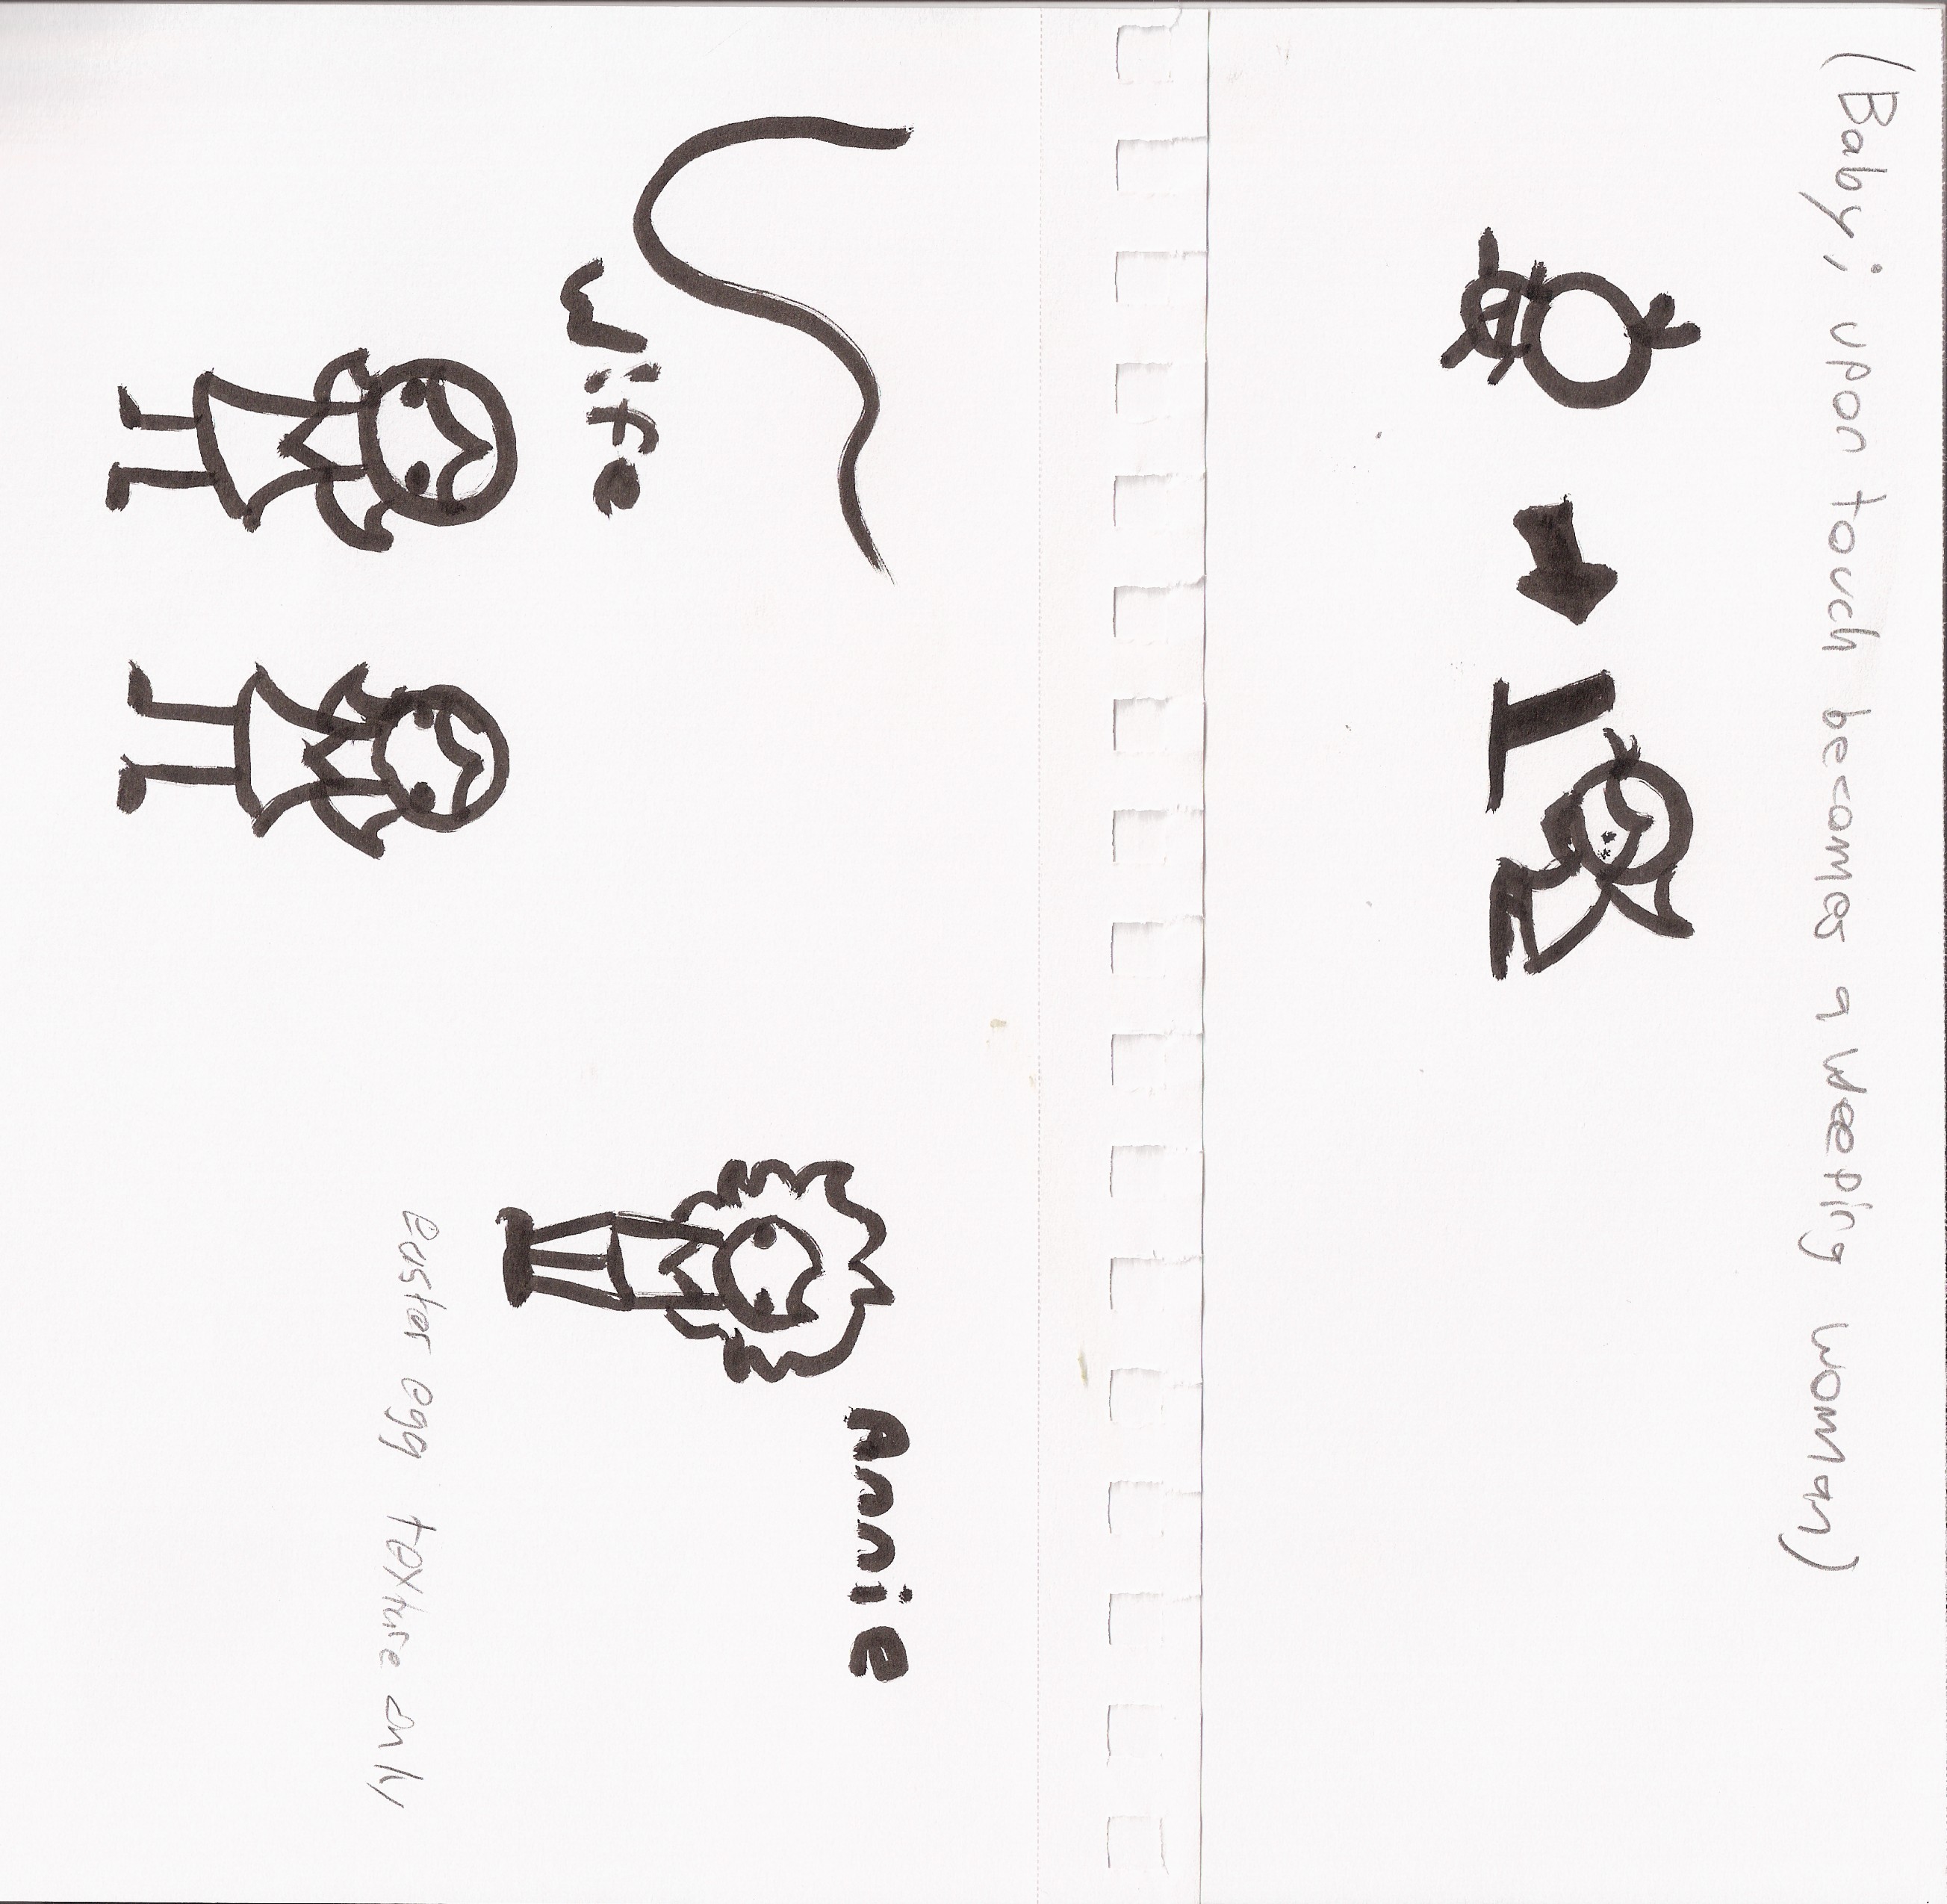 (Baby; upon touch becomes a weeping woman)
wife
Annie
easter egg texture only